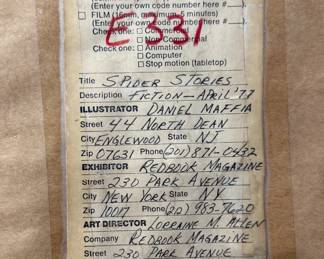 (Enter your own code number here #
FILM (5 minutes)
(Enter your own code number here #
E331
Check one:
Commercial
Check one: Animation
Computer
Stop motion (tabletop)
Title SPIDER STORIES
Description FICTION - APRIL '77
ILLUSTRATOR DANIEL MAFFIA
Street 44 NORTH DEAN
City ENGLEWOOD State NJ
Zip 07631 Phone (201) 871-0432
EXHIBITOR REDBOOK MAGAZINE
Street 230 PARK AVENUE
City NEW YORK State NY
Zip 10017 Phone (212) 983-7620
ART DIRECTOR LORRAINE M. ALLEN
Company REDBOOK MAGAZINE
Street 230 PARK AVENUE